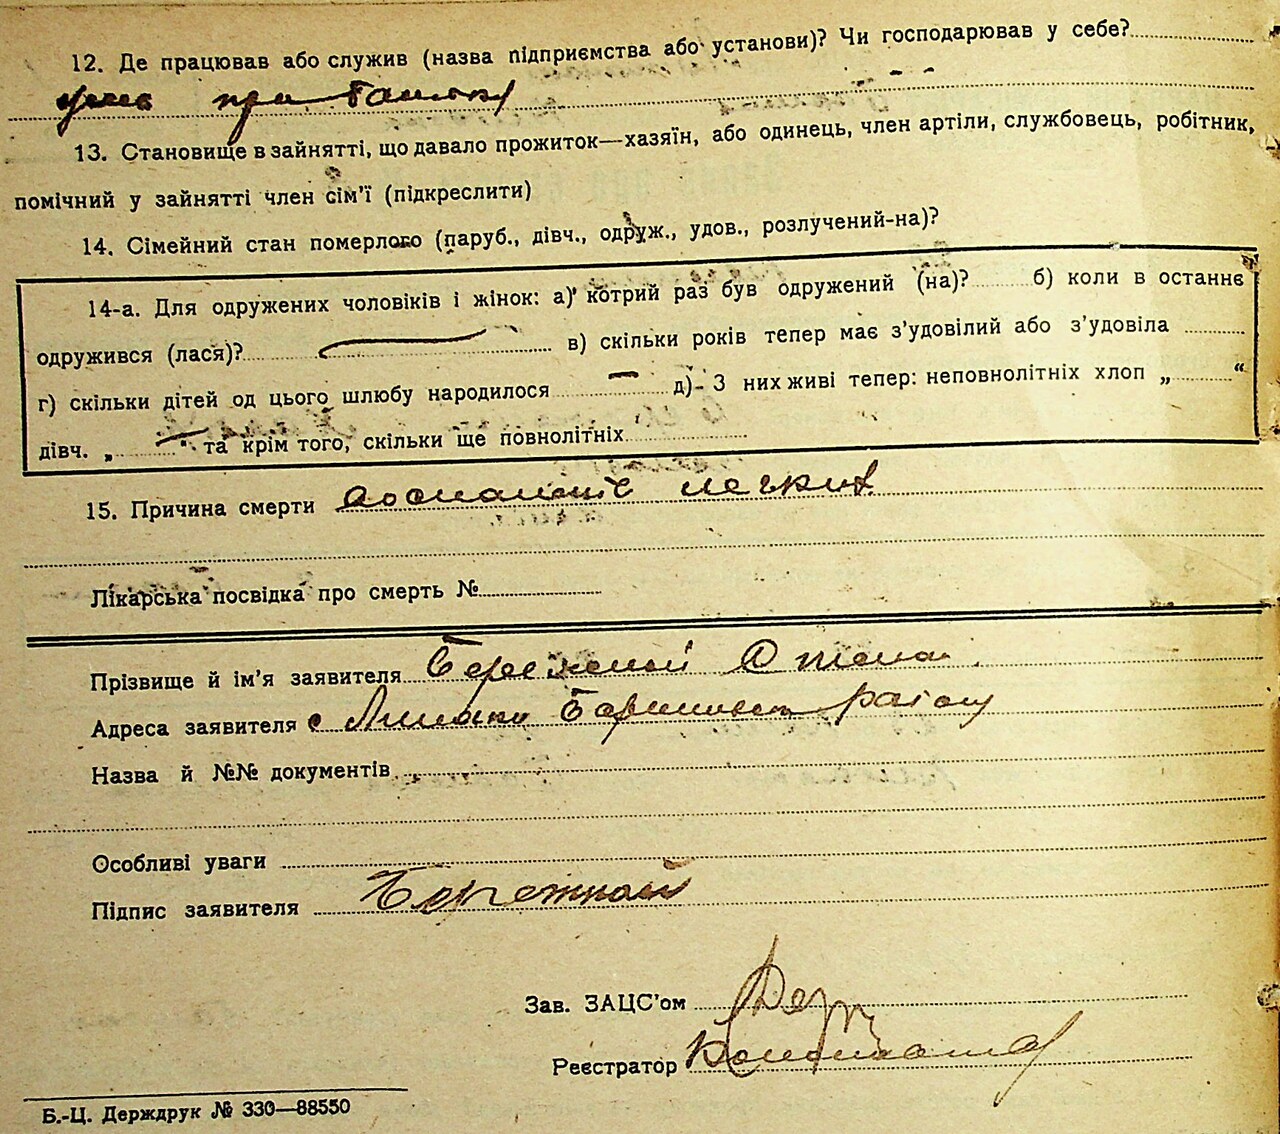 12. Де працював або служив (назва підприємства або установи)? Чи господарював у себе?
при батьку
13. Становище в зайнятті, що давало прожиток—хазяїн, або одинець, член артіли, службовець, робітник,
помічний у зайнятті член сім'ї (підкреслити)
14. Сімейний стан померлого (паруб., дівч., одруж., удов., розлучений-на)?
14-а. Для одружених чоловіків і жінок: а) котрий раз був одружений (на)? б) коли в останнє
одружився (лася)? в) скільки років тепер має з'удовілий або з'удовіла
г) скільки дітей од цього шлюбу народилося — д) З них живі тепер: неповнолітніх хлоп „ “
дівч. „ — " та крім того, скільки ще повнолітніх
15. Причина смерти воспаленіє легких
Лікарська посвідка про смерть №
Прізвище й ім'я заявителя Бережной
Адреса заявителя с району
Назва й №№ документів
Особливі уваги
Підпис заявителя Бережной
Зав. ЗАЦС'ом
Реєстратор
Б.-Ц. Держдрук № 330—88550